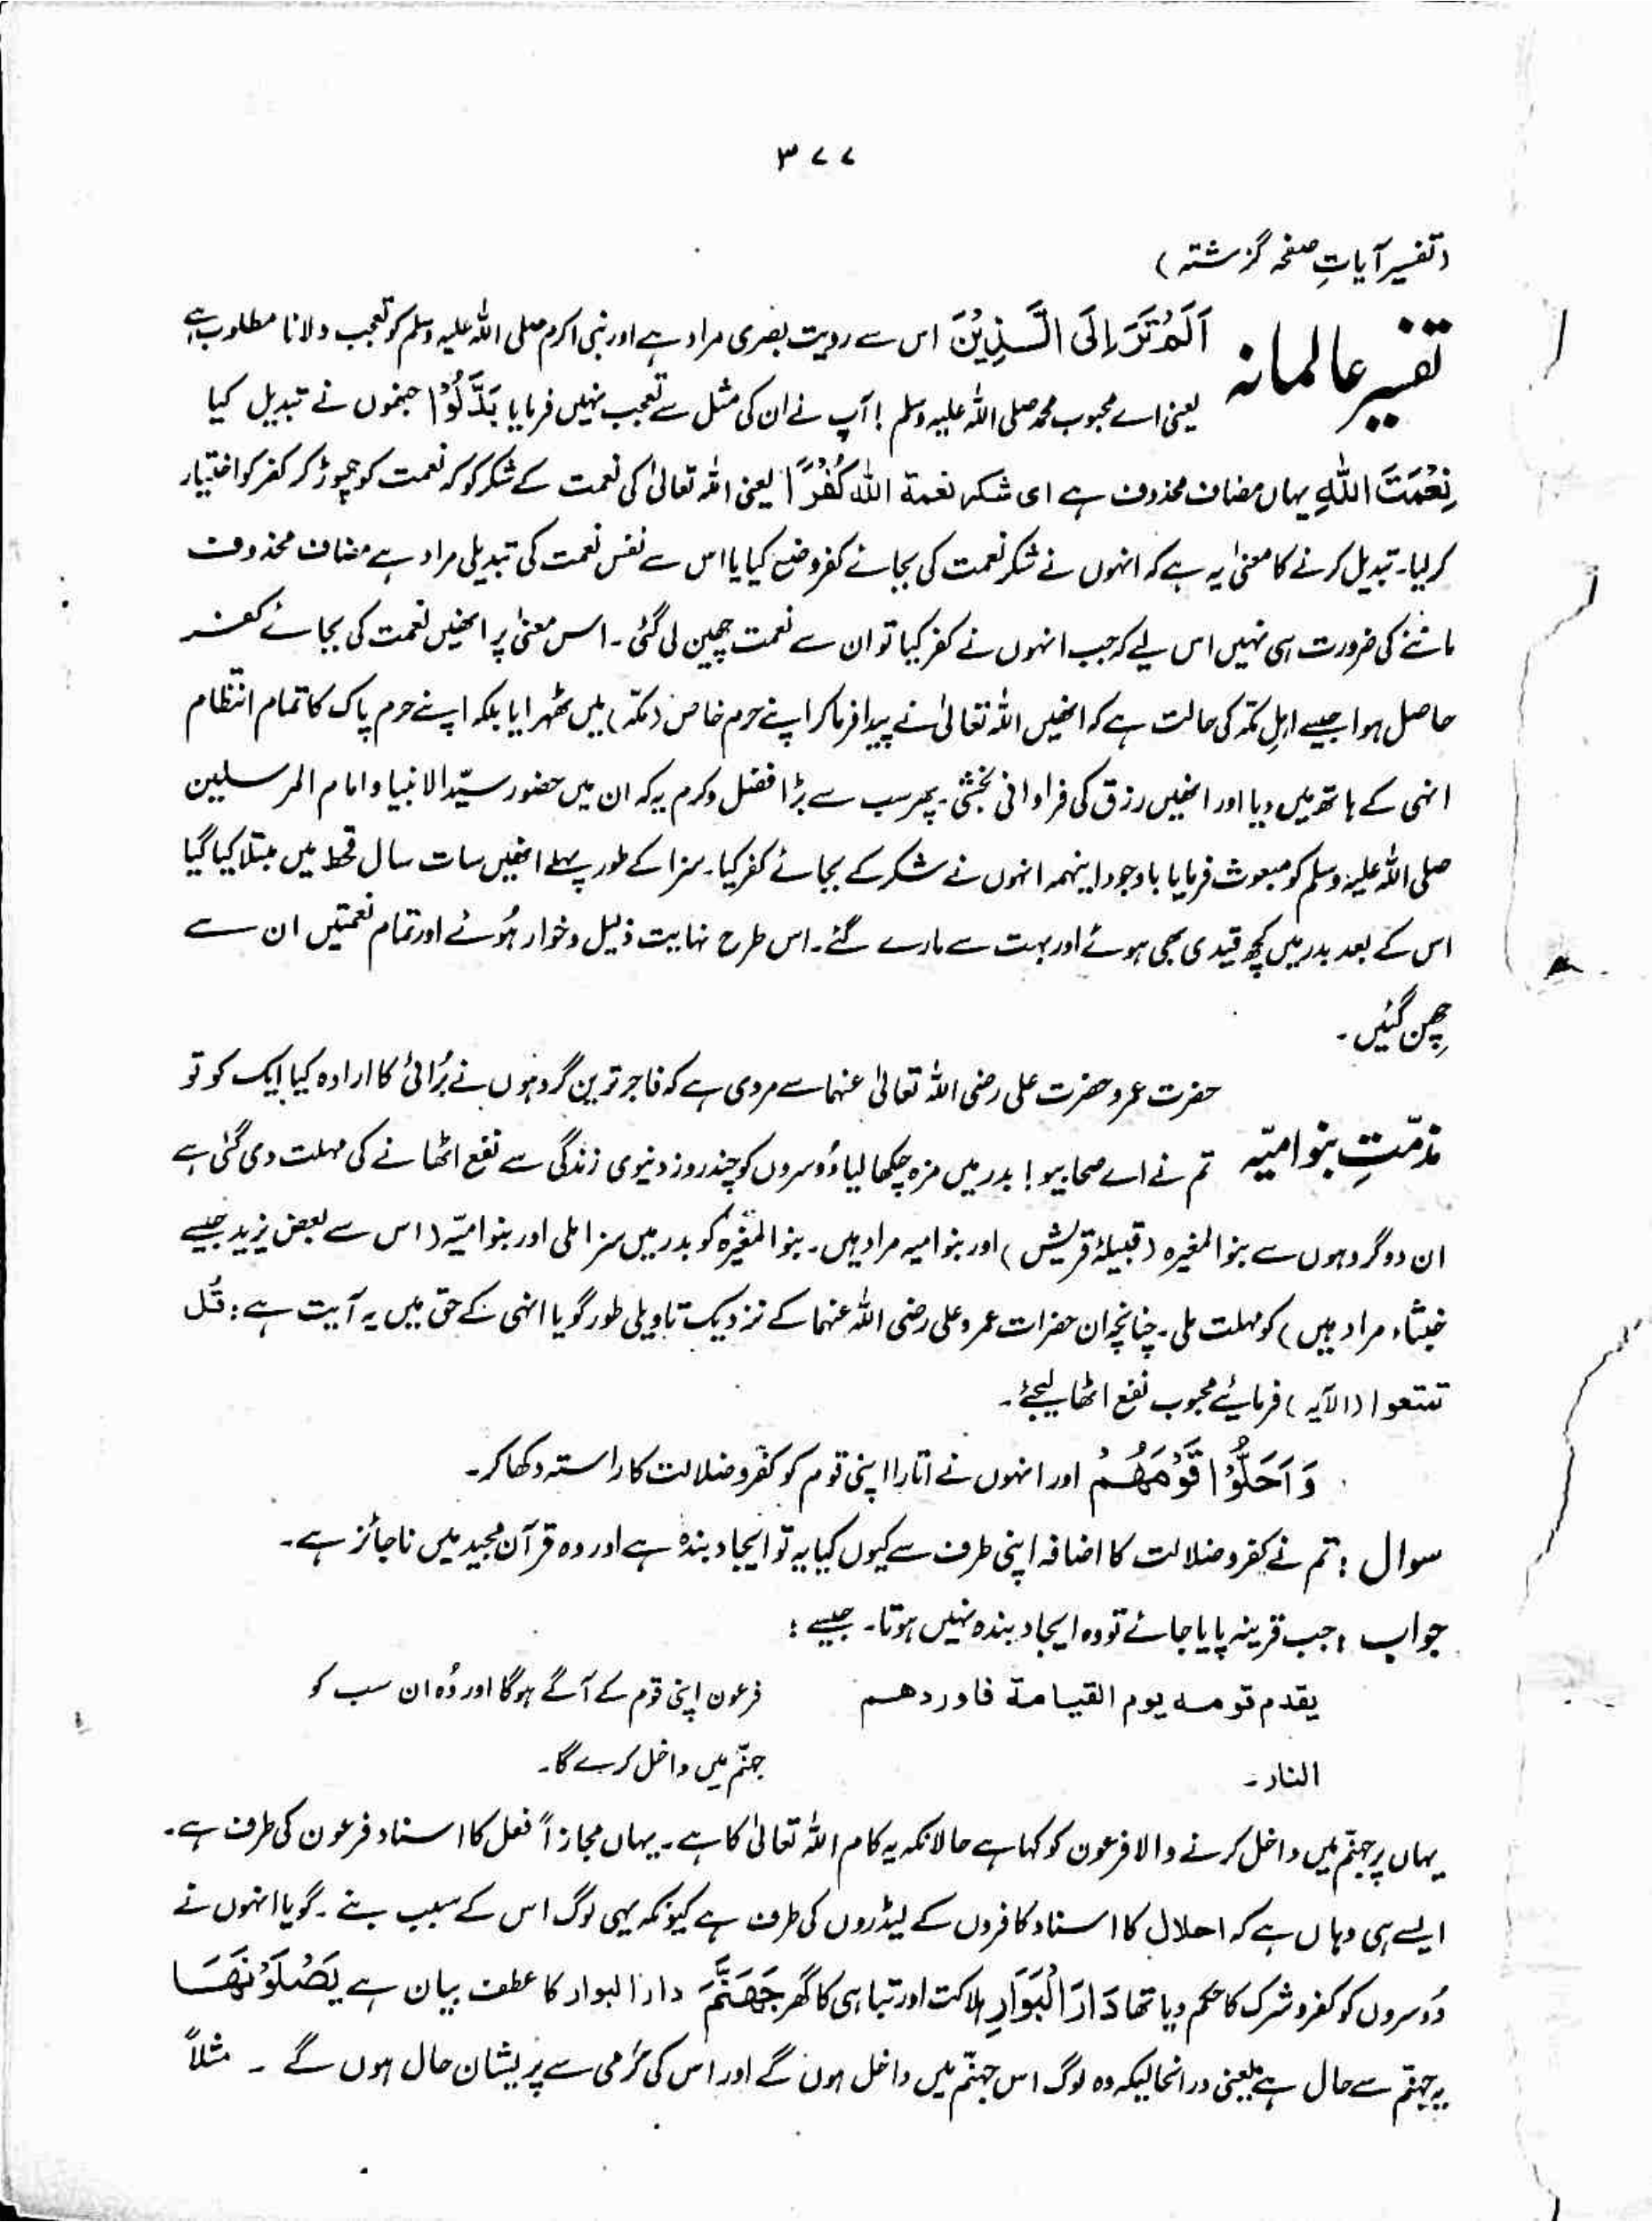 ۳۷۷
(تفسیر آیاتِ صفحہ گزشتہ)
تفسیر عالمانہ
اَلَمْ تَرَ اِلَی الَّذِیْنَ اس سے رویت بصری مراد ہے اور نبی اکرم صلی اللہ علیہ وسلم کو تعجب دلانا مطلوب ہے
یعنی اے محبوب محمد صلی اللہ علیہ وسلم ! آپ نے ان کی مثل سے تعجب نہیں فرمایا بَدَّلُوْا جنہوں نے تبدیل کیا
نِعْمَتَ اللّٰہِ یہاں مضاف محذوف ہے ای شکر نعمۃ اللہ کُفْرًا یعنی اللہ تعالیٰ کی نعمت کے شکر کو کہ نعمت کو چھوڑ کر کفر کو اختیار
کرلیا۔ تبدیل کرنے کا معنیٰ یہ ہے کہ انہوں نے شکر نعمت کی بجائے کفر وضع کیا یا اس سے نفس نعمت کی تبدیلی مراد ہے مضاف محذوف
ماننے کی ضرورت ہی نہیں اس لیے کہ جب انہوں نے کفر کیا تو ان سے نعمت چھین لی گئی۔ اس معنیٰ پر انھیں نعمت کی بجائے کفر
حاصل ہوا جیسے اہلِ مکہ کی حالت ہے کہ انھیں اللہ تعالیٰ نے پیدا فرما کر اپنے حرم خاص (مکہ) میں ٹھہرایا بلکہ اپنے حرم پاک کا تمام انتظام
انہی کے ہاتھ میں دیا اور انھیں رزق کی فراوانی بخشی۔ پھر سب سے بڑا فضل وکرم یہ کہ ان میں حضور سیّد الانبیا و امام المرسلین
صلی اللہ علیہ وسلم کو مبعوث فرمایا باوجود اینہمہ انہوں نے شکر کے بجائے کفر کیا۔ سزا کے طور پہلے انھیں سات سال قحط میں مبتلا کیا گیا
اس کے بعد بدر میں کچھ قیدی بھی ہوئے اور بہت سے مارے گئے۔ اس طرح نہایت ذلیل و خوار ہُوئے اور تمام نعمتیں ان سے
چِھن گئیں۔
مذمّتِ بنو امیّہ
حضرت عمر و حضرت علی رضی اللہ تعالیٰ عنہما سے مروی ہے کہ فاجر ترین گروہوں نے بُرائی کا ارادہ کیا ایک کو تو
تم نے اے صحابیو ! بدر میں مزہ چکھا لیا دُوسروں کو چند روز دنیوی زندگی سے نفع اٹھانے کی مہلت دی گئی ہے
ان دو گروہوں سے بنو المغیرہ (قبیلۂ قریش) اور بنو امیہ مراد ہیں۔ بنو المغیرہ کو بدر میں سزا ملی اور بنو امیّہ (اس سے بعض یزید جیسے
خبثاء مراد ہیں) کو مہلت ملی۔ چنانچہ ان حضرات عمر و علی رضی اللہ عنہما کے نزدیک تاویلی طور گویا انہی کے حق میں یہ آیت ہے : قُل
تمتعوا (الآیہ) فرمائیے محبوب نفع اٹھا لیجئے۔
وَاَحَلُّوْا قَوْمَھُمْ اور انہوں نے اتارا اپنی قوم کو کفر و ضلالت کا راستہ دکھا کر۔
سوال : تم نے کفر و ضلالت کا اضافہ اپنی طرف سے کیوں کیا یہ تو ایجاد بندہ ہے اور وہ قرآن مجید میں ناجائز ہے۔
جواب : جب قرینہ پایا جائے تو وہ ایجاد بندہ نہیں ہوتا۔ جیسے :
یقدم قومہ یوم القیامۃ فاوردھم
النار۔
فرعون اپنی قوم کے آگے ہوگا اور وُہ ان سب کو
جہنّم میں داخل کرے گا۔
یہاں پر جہنّم میں داخل کرنے والا فرعون کو کہا ہے حالانکہ یہ کام اللہ تعالیٰ کا ہے۔ یہاں مجازاً فعل کا اسناد فرعون کی طرف ہے۔
ایسے ہی وہاں ہے کہ احلال کا اسناد کافروں کے لیڈروں کی طرف ہے کیونکہ یہی لوگ اس کے سبب بنے۔ گویا انہوں نے
دُوسروں کو کفر و شرک کا حکم دیا تھا دَارَ الْبَوَارِ ہلاکت اور تباہی کا گھر جَھَنَّمَ دار البوار کا عطف بیان ہے یَصْلَوْنَھَا
یہ جہنّم سے حال ہے یعنی درانحالیکہ وہ لوگ اس جہنّم میں داخل ہوں گے اور اس کی گرمی سے پریشان حال ہوں گے ۔ مثلاً